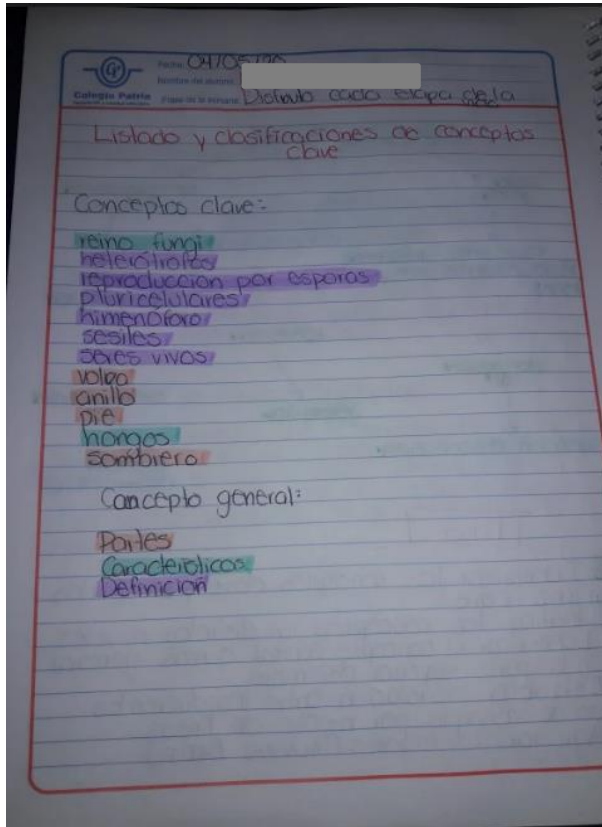 Fecha: 04/05/20
Nombre del alumno:
Colegio Patria
Distinguo cada etapa de la
Listado y clasificaciones de conceptos
clave
Conceptos clave:
reino fungi
heterótrofos
reproducción por esporas
pluricelulares
himenóforo
sesiles
seres vivos
volva
anillo
pie
hongos
sombrero
Concepto general:
Partes
Características
Definición